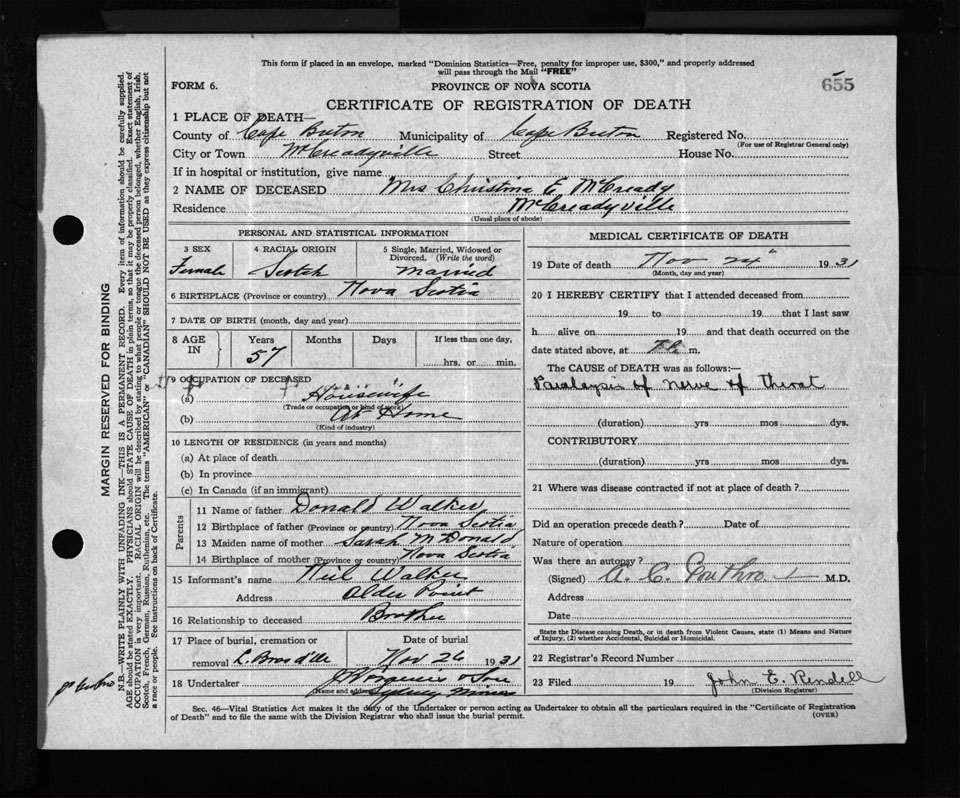 This form if placed in an envelope, marked "Dominion Statistics—Free, penalty for improper use, $300," and properly addressed
will pass through the Mail "FREE"
655
FORM 6.
PROVINCE OF NOVA SCOTIA
CERTIFICATE OF REGISTRATION OF DEATH
1 PLACE OF DEATH—
County of Cape Breton Municipality of Cape Breton Registered No.
(For use of Registrar General only)
City or Town McCreadyville Street House No.
If in hospital or institution, give name
2 NAME OF DECEASED Mrs Christina E. McCready
Residence McCreadyville
(Usual place of abode)
PERSONAL AND STATISTICAL INFORMATION
3 SEX 4 RACIAL ORIGIN 5 Single, Married, Widowed or
Divorced. (Write the word)
Female Scotch Married
6 BIRTHPLACE (Province or country) Nova Scotia
7 DATE OF BIRTH (month, day and year)
8 AGE IN Years Months Days If less than one day,
57 hrs. or min.
9 OCCUPATION OF DECEASED
(a) Housewife
(Trade or occupation or kind of work)
(b) At Home
(Kind of industry)
10 LENGTH OF RESIDENCE (in years and months)
(a) At place of death
(b) In province
(c) In Canada (if an immigrant)
Parents
11 Name of father Donald Walker
12 Birthplace of father (Province or country) Nova Scotia
13 Maiden name of mother Sarah McDonald
14 Birthplace of mother (Province or country) Nova Scotia
15 Informant's name Neil Walker
Address Alder Point
16 Relationship to deceased Brother
17 Place of burial, cremation or Date of burial
removal L. Bras d'Or Nov 26 1931
18 Undertaker & Son
(Name and address) Sydney Mines
MEDICAL CERTIFICATE OF DEATH
19 Date of death Nov 24" 1931
(Month, day and year)
20 I HEREBY CERTIFY that I attended deceased from
19 to 19 that I last saw
h alive on 19 and that death occurred on the
date stated above, at m.
The CAUSE OF DEATH was as follows:—
Paralysis of nerve of throat
(duration) yrs mos dys.
CONTRIBUTORY
(duration) yrs mos dys.
21 Where was disease contracted if not at place of death?
Did an operation precede death? Date of
Nature of operation
Was there an autopsy?
(Signed) A. C. Gouthro M.D.
Address
Date
State the Disease causing Death, or in death from Violent Causes, state (1) Means and Nature
of Injury, (2) whether Accidental, Suicidal or Homicidal.
22 Registrar's Record Number
23 Filed 19 John E. Rendell
(Division Registrar)
Sec. 46—Vital Statistics Act makes it the duty of the Undertaker or person acting as Undertaker to obtain all the particulars required in the "Certificate of Registration
of Death" and to file the same with the Division Registrar who shall issue the burial permit.
(OVER)
MARGIN RESERVED FOR BINDING
N.B.—WRITE PLAINLY WITH UNFADING INK—THIS IS A PERMANENT RECORD. Every item of information should be carefully supplied.
AGE should be stated EXACTLY. PHYSICIANS should STATE CAUSE OF DEATH in plain terms, so that it may be properly classified. Exact statement of
OCCUPATION is very important. RACIAL ORIGIN will be described by stating to what people or tongue the deceased person belonged, whether English, Irish,
Scotch, French, German, Russian, Ruthenian, etc. The terms "AMERICAN" or "CANADIAN" SHOULD NOT BE USED as they express citizenship but not
a race or people. See instructions on back of Certificate.